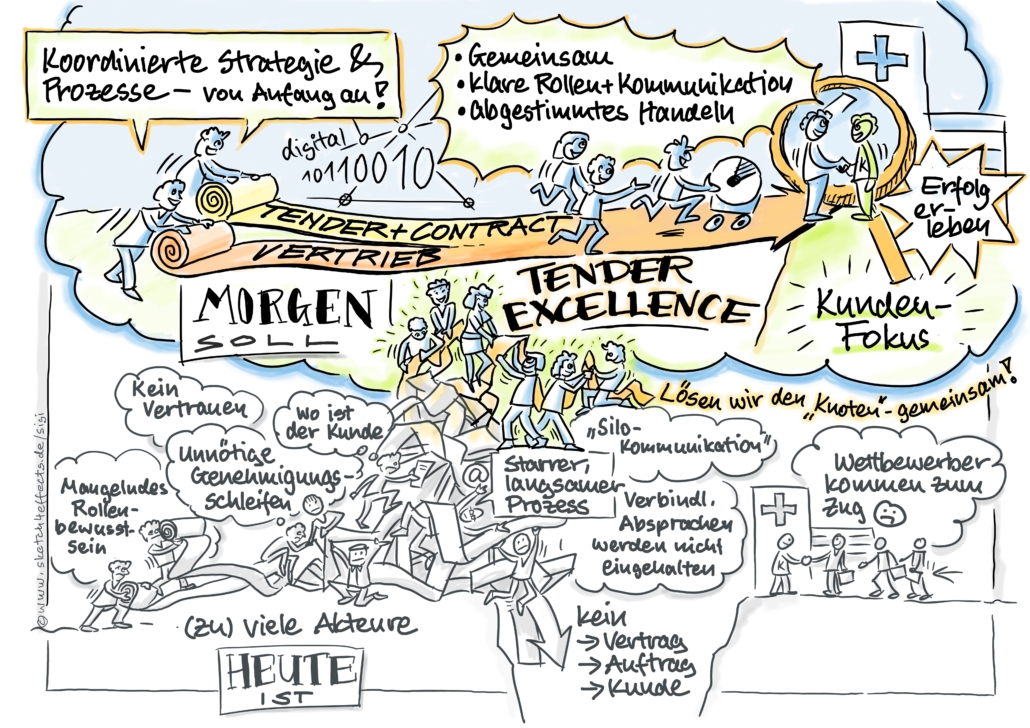 Koordinierte Strategie &
Prozesse – von Anfang an!
• Gemeinsam
• klare Rollen + Kommunikation
• abgestimmtes Handeln
digital
10110010
TENDER + CONTRACT
VERTRIEB
K
Erfolg
er-
leben
MORGEN
SOLL
TENDER
EXCELLENCE
Kunden-
Fokus
Lösen wir den „Knoten"- gemeinsam!
Kein
Vertrauen
Wo ist
der Kunde
Unnötige
Genehmigungs-
schleifen
Mangelndes
Rollen-
bewusst-
sein
„Silo-
Kommunikation"
Starrer,
langsamer
Prozess
@
Verbindl.
Absprachen
werden nicht
eingehalten
Wettbewerber
kommen zum
Zug
K
(zu) viele Akteure
HEUTE
IST
kein
→ Vertrag
→ Auftrag
→ Kunde
©www.sketch4effects.de/sisi